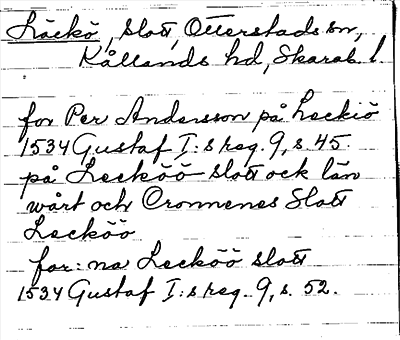 Läckö, slott, Otterstads sn,
Kållands hd, Skarab. l.
for Per Andersson på Leckiö
1534 Gustaf I:s reg. 9, s. 45.
på Lecköö slott ock län
wårt och Cronnenes Slott
Lecköö
for: na Lecköö slott
1534 Gustaf I:s reg. 9, s. 52.